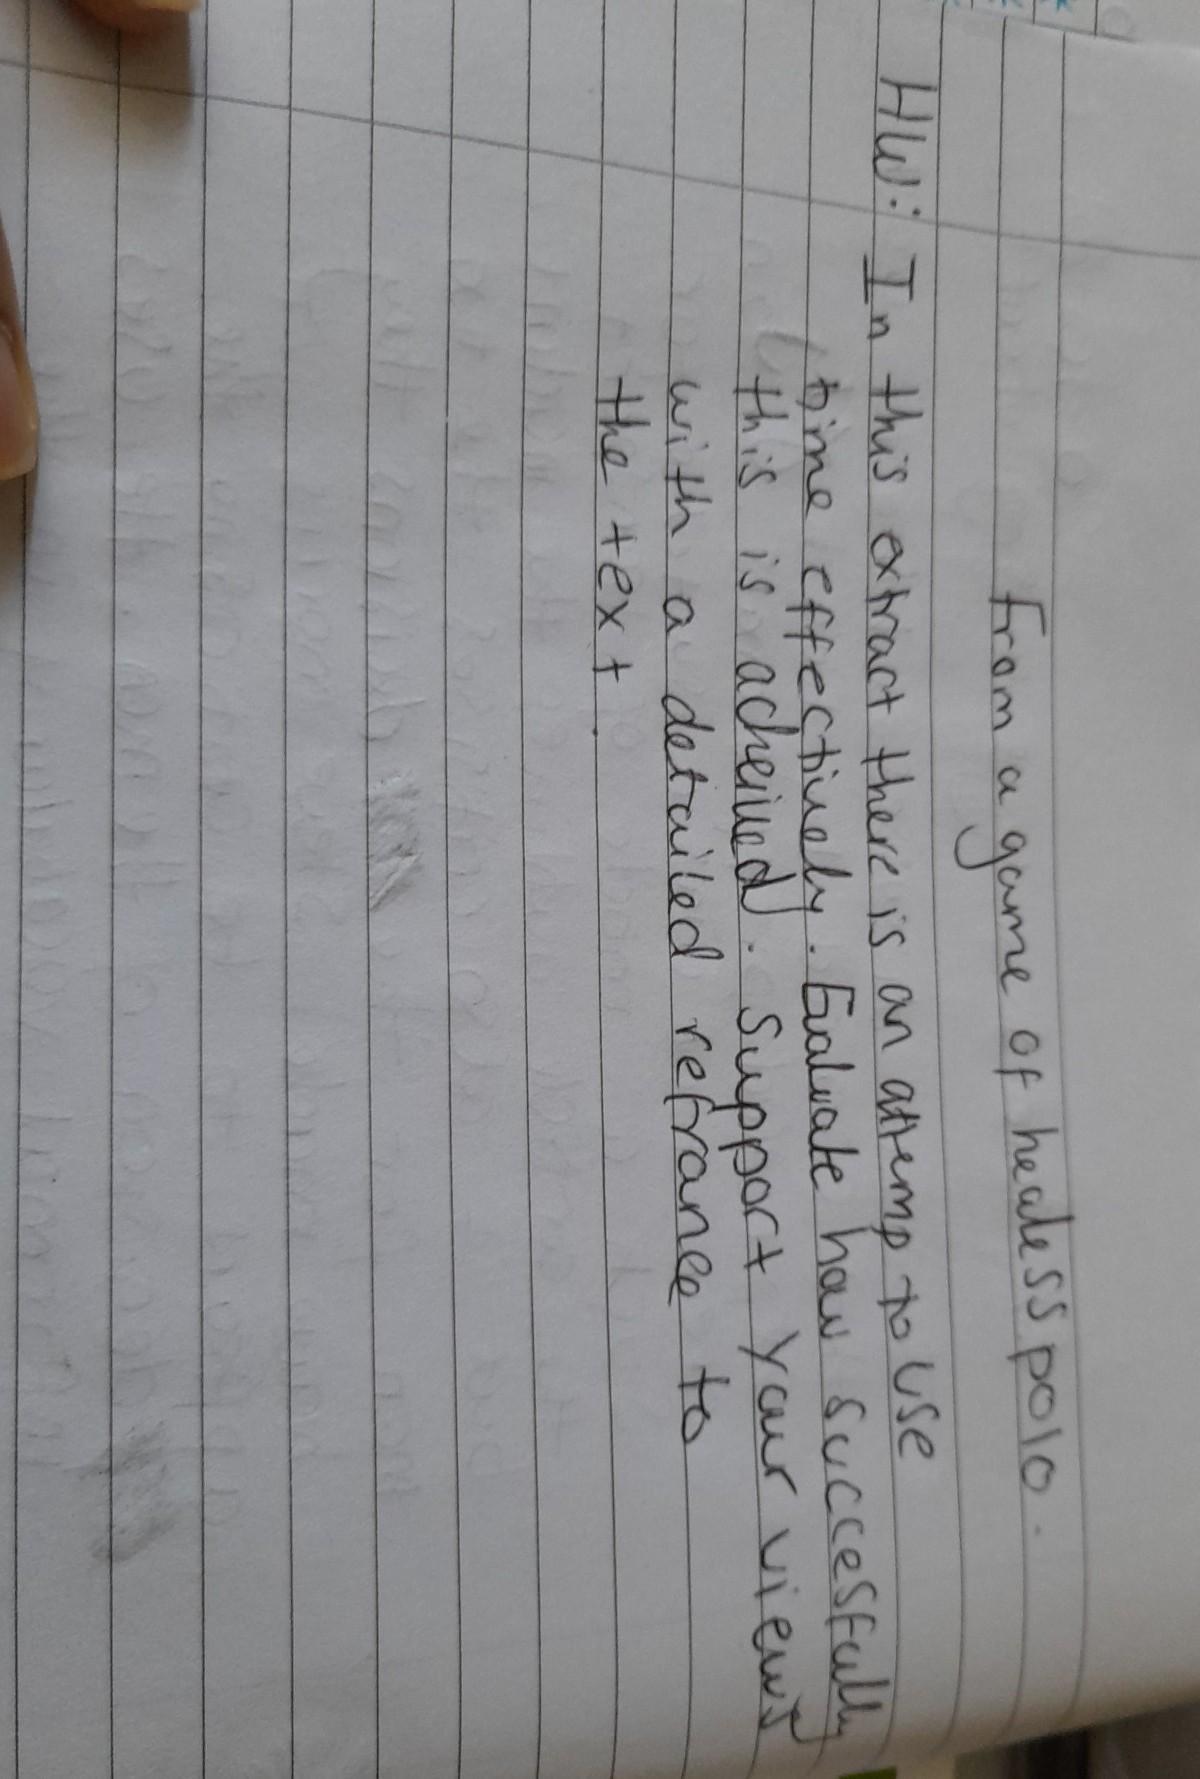 from a game of healess polo.
HW: In this extract there is an attemp to use
time effectively. Evaluate how succesfully
this is acheived. Support your views
with a detailed refrance to
the text.